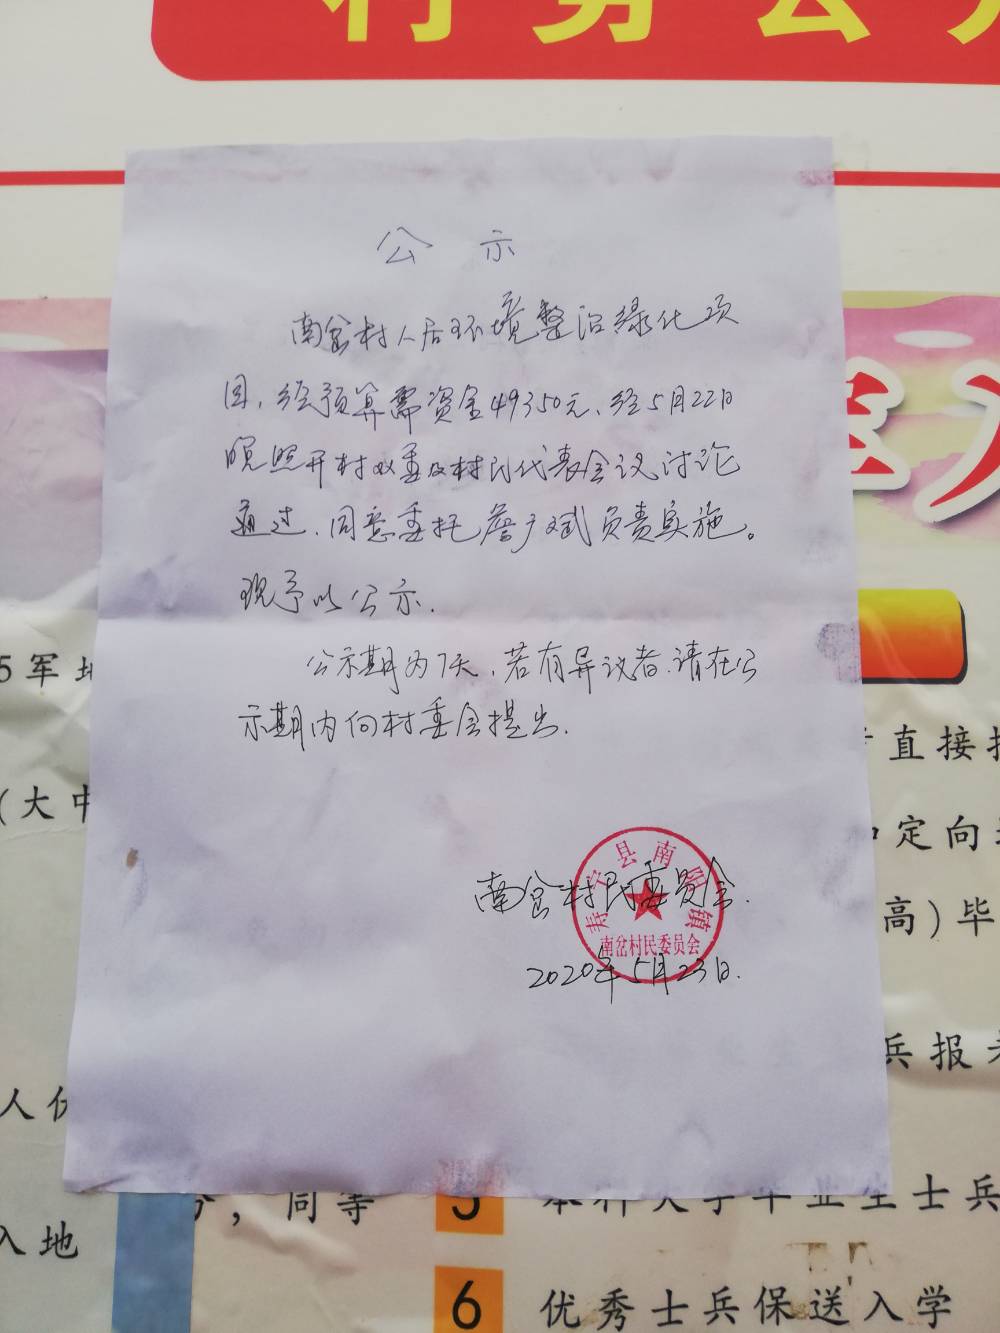 村务公开
公示
南岔村人居环境整治绿化项
目，经预算需资金49350元、经5月22日
晚照开村双委及村民代表会议讨论
通过，同意委托詹广斌负责实施。
现予以公示.
公示期为7天，若有异议者，请在公
示期内向村委会提出.
南岔村民委员会.
2020年5月23日.
寿宁县南阳镇
南岔村民委员会
5军地
(大中
直接招
和定向
高)毕
兵报考
人伍
入地
分，同等
5 本科大学毕业生士兵
6 优秀士兵保送入学